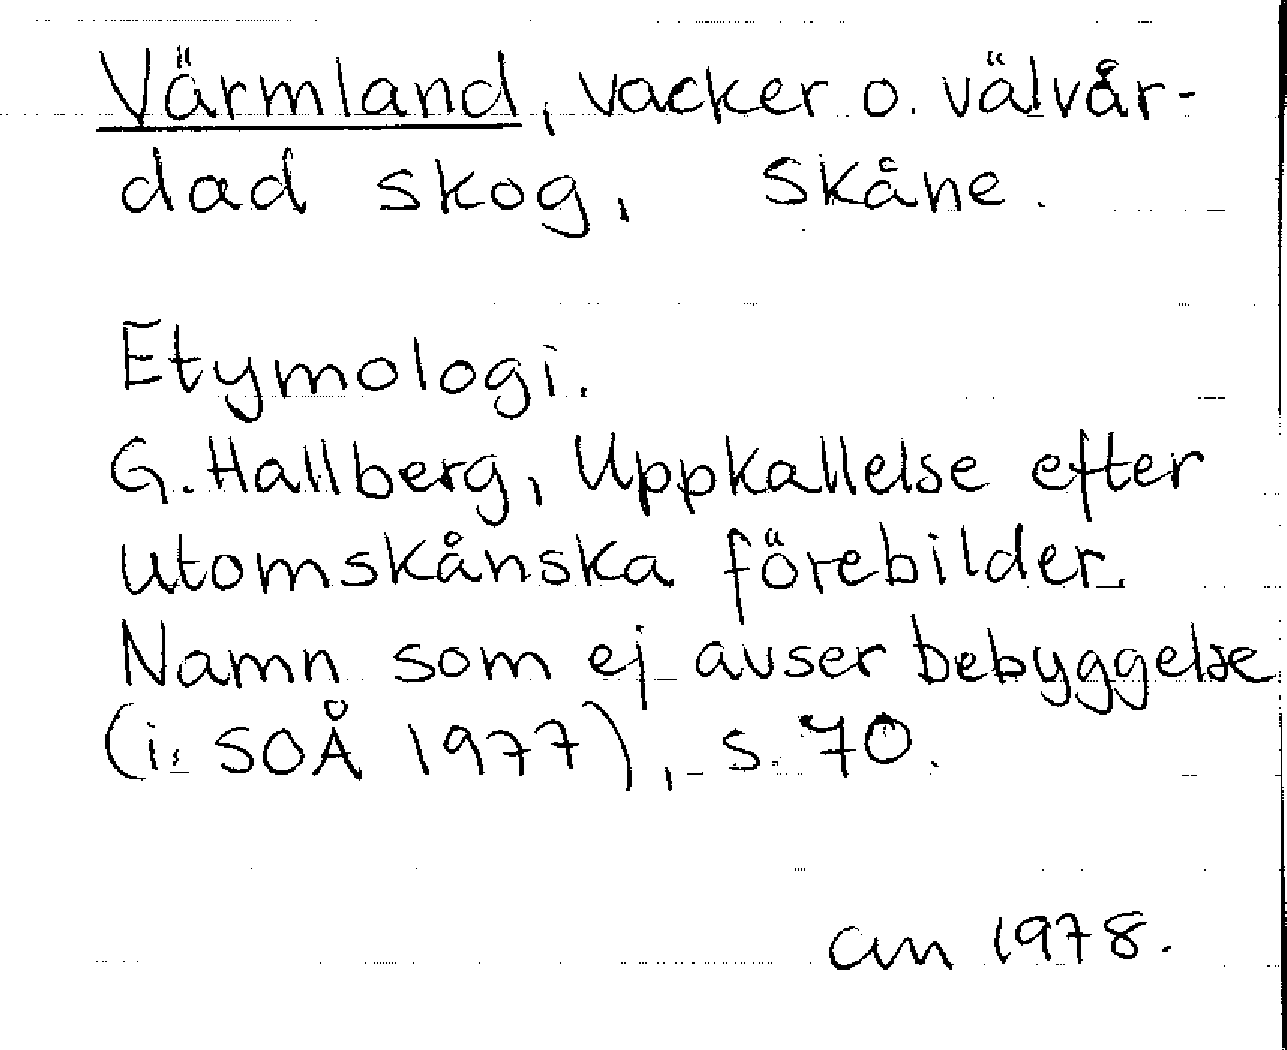 Värmland, vacker o. välvår-
dad skog, Skåne.
Etymologi.
G. Hallberg, Uppkallelse efter
utomskånska förebilder.
Namn som ej avser bebyggelse
(i: SOÅ 1977), s. 70.
am 1978.